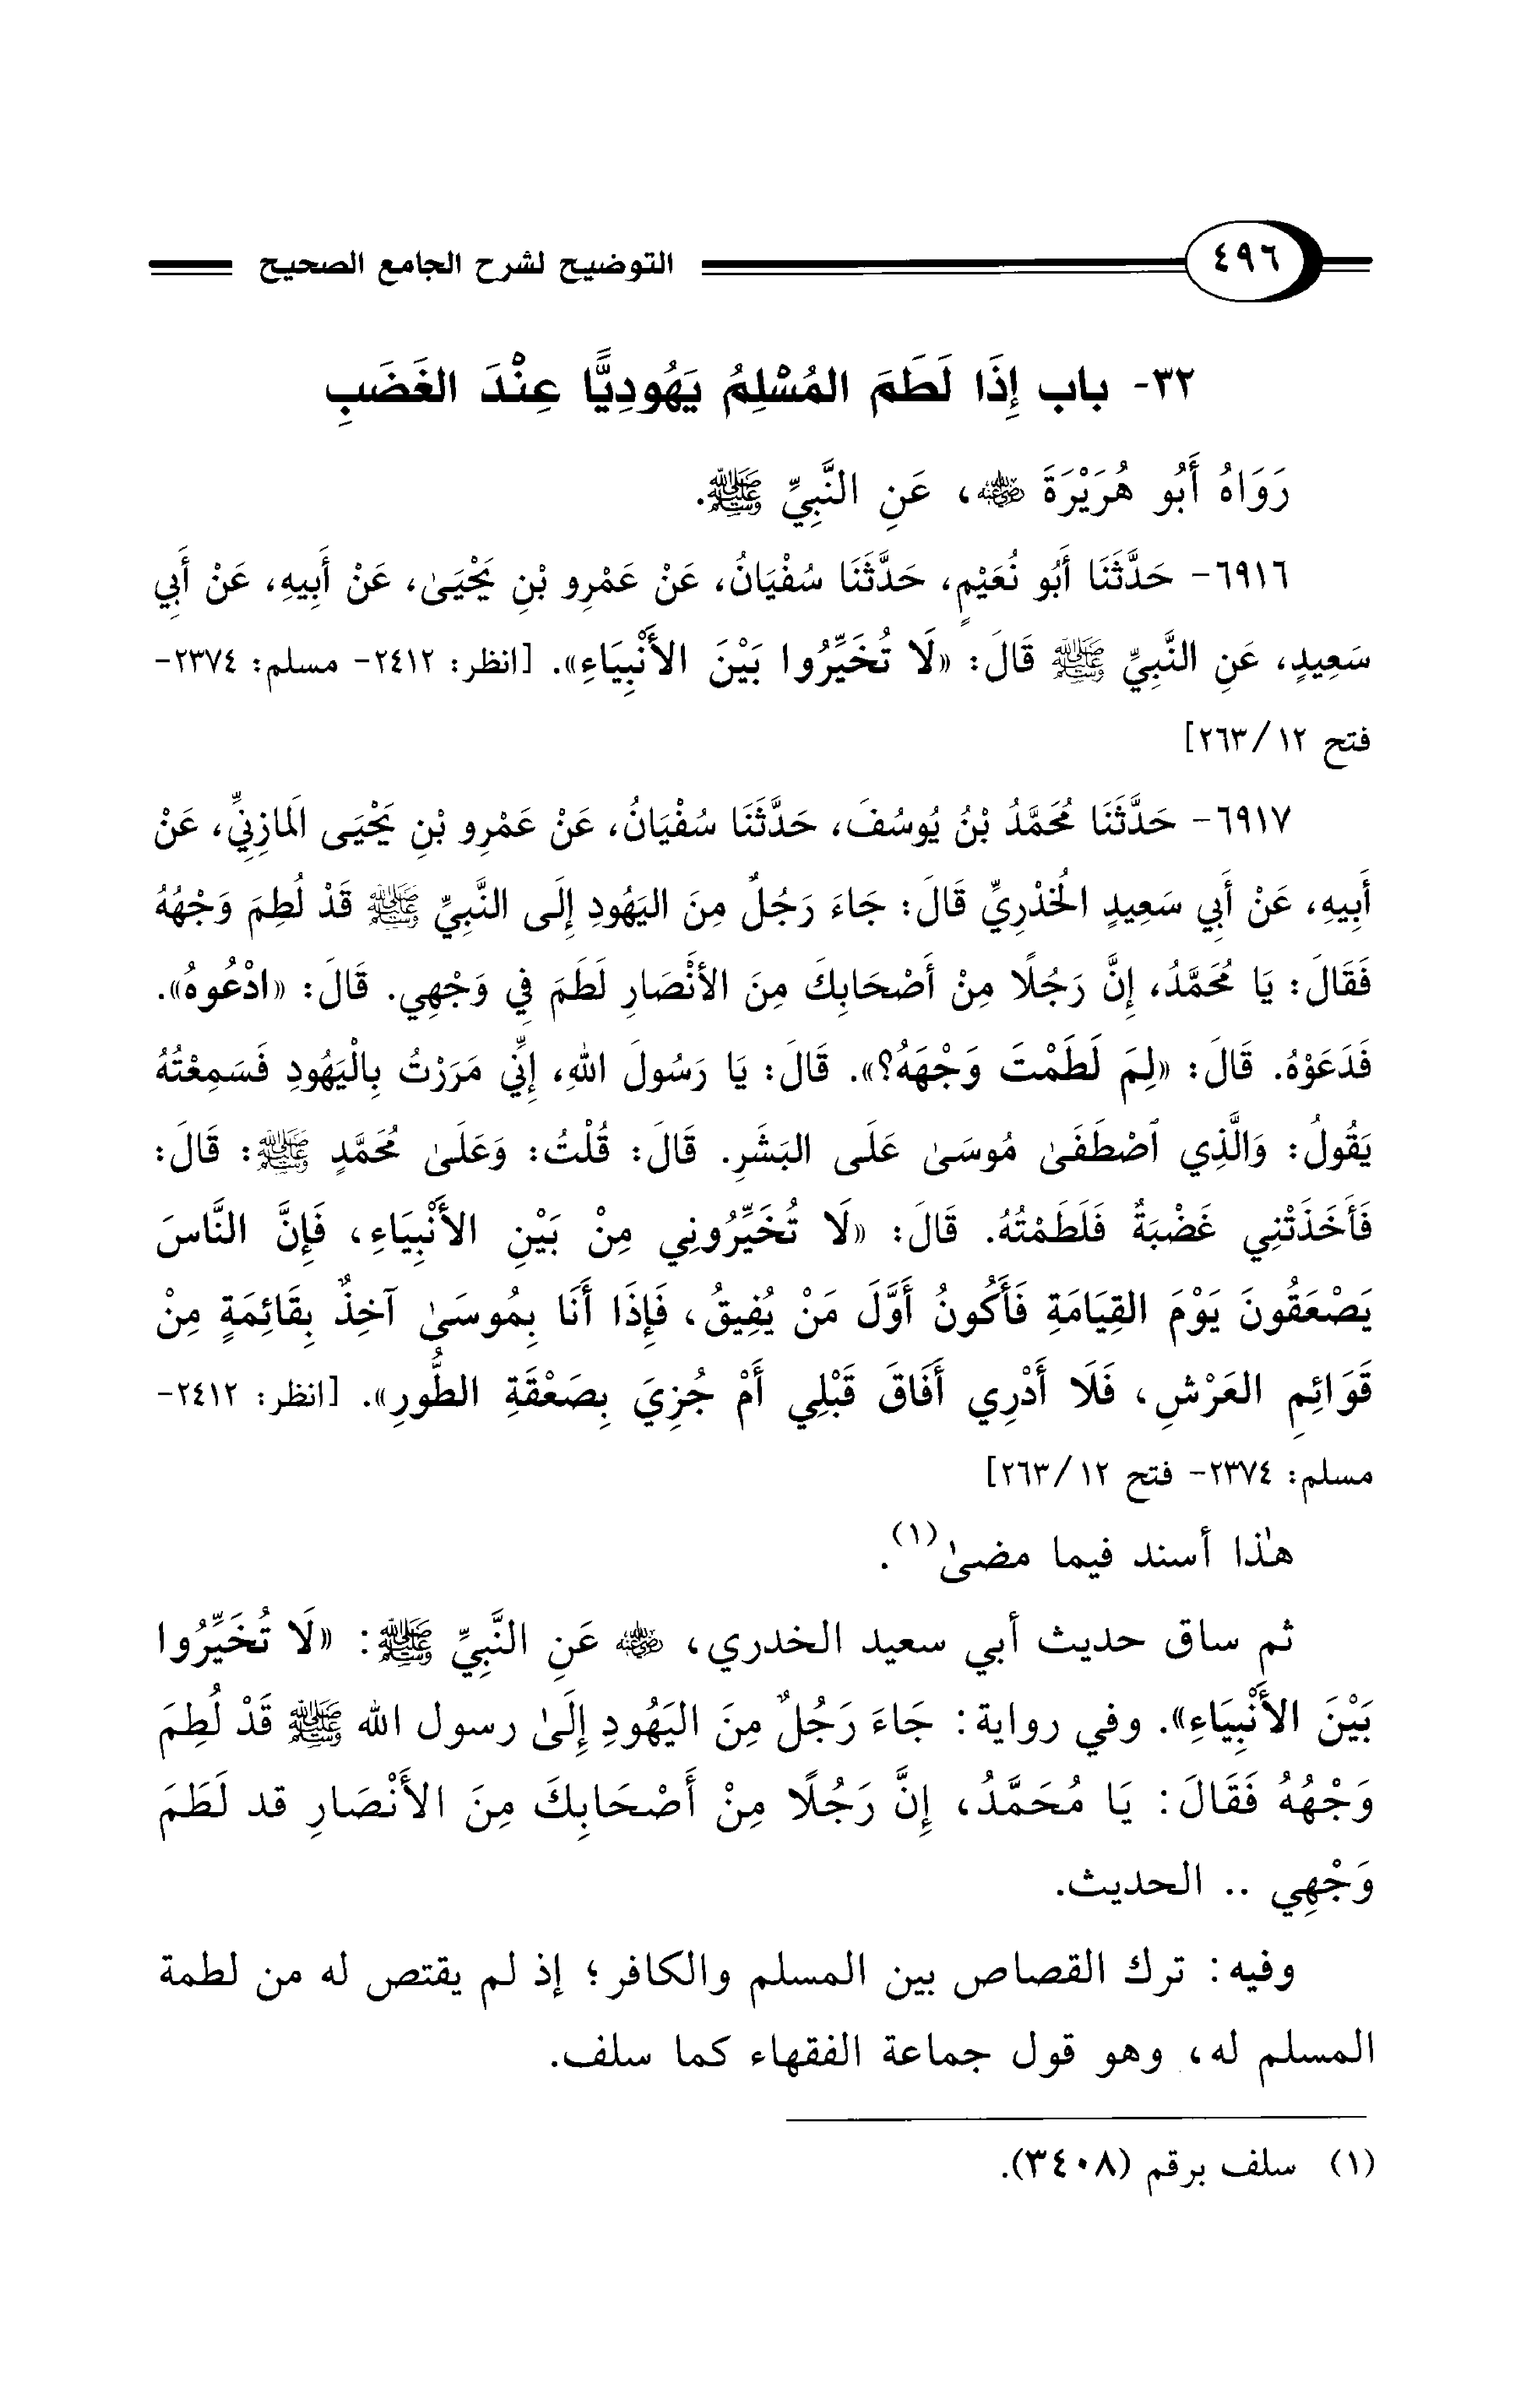 ٤٩٦ التوضيح لشرح الجامع الصحيح
٣٢- باب إِذَا لَطَمَ المُسْلِمُ يَهُودِيًّا عِنْدَ الغَضَبِ
رَوَاهُ أَبُو هُرَيْرَةَ رضي الله عنه، عَنِ النَّبِيِّ ﷺ.
٦٩١٦- حَدَّثَنَا أَبُو نُعَيْمٍ، حَدَّثَنَا سُفْيَانُ، عَنْ عَمْرِو بْنِ يَحْيَىٰ، عَنْ أَبِيهِ، عَنْ أَبِي
سَعِيدٍ، عَنِ النَّبِيِّ ﷺ قَالَ: «لَا تُخَيِّرُوا بَيْنَ الأَنْبِيَاءِ». [انظر: ٢٤١٢- مسلم: ٢٣٧٤-
فتح ١٢/ ٢٦٣]
٦٩١٧- حَدَّثَنَا مُحَمَّدُ بْنُ يُوسُفَ، حَدَّثَنَا سُفْيَانُ، عَنْ عَمْرِو بْنِ يَحْيَى المَازِنِيِّ، عَنْ
أَبِيهِ، عَنْ أَبِي سَعِيدٍ الخُدْرِيِّ قَالَ: جَاءَ رَجُلٌ مِنَ اليَهُودِ إِلَى النَّبِيِّ ﷺ قَدْ لُطِمَ وَجْهُهُ
فَقَالَ: يَا مُحَمَّدُ، إِنَّ رَجُلًا مِنْ أَصْحَابِكَ مِنَ الأَنْصَارِ لَطَمَ فِي وَجْهِي. قَالَ: «ادْعُوهُ».
فَدَعَوْهُ. قَالَ: «لِمَ لَطَمْتَ وَجْهَهُ؟». قَالَ: يَا رَسُولَ اللهِ، إِنِّي مَرَرْتُ بِالْيَهُودِ فَسَمِعْتُهُ
يَقُولُ: وَالَّذِي ٱصْطَفَىٰ مُوسَىٰ عَلَى البَشَرِ. قَالَ: قُلْتُ: وَعَلَىٰ مُحَمَّدٍ ﷺ: قَالَ:
فَأَخَذَتْنِي غَضْبَةٌ فَلَطَمْتُهُ. قَالَ: «لَا تُخَيِّرُونِي مِنْ بَيْنِ الأَنْبِيَاءِ، فَإِنَّ النَّاسَ
يَصْعَقُونَ يَوْمَ القِيَامَةِ فَأَكُونُ أَوَّلَ مَنْ يُفِيقُ، فَإِذَا أَنَا بِمُوسَىٰ آخِذٌ بِقَائِمَةٍ مِنْ
قَوَائِمِ العَرْشِ، فَلَا أَدْرِي أَفَاقَ قَبْلِي أَمْ جُزِيَ بِصَعْقَةِ الطُّورِ». [انظر: ٢٤١٢-
مسلم: ٢٣٧٤- فتح ١٢/ ٢٦٣]
هٰذا أسند فيما مضىٰ(١).
ثم ساق حديث أبي سعيد الخدري، رضي الله عنه عَنِ النَّبِيِّ ﷺ: «لَا تُخَيِّرُوا
بَيْنَ الأَنْبِيَاءِ». وفي رواية: جَاءَ رَجُلٌ مِنَ اليَهُودِ إِلَىٰ رسول الله ﷺ قَدْ لُطِمَ
وَجْهُهُ فَقَالَ: يَا مُحَمَّدُ، إِنَّ رَجُلًا مِنْ أَصْحَابِكَ مِنَ الأَنْصَارِ قد لَطَمَ
وَجْهِي .. الحديث.
وفيه: ترك القصاص بين المسلم والكافر؛ إذ لم يقتص له من لطمة
المسلم له، وهو قول جماعة الفقهاء كما سلف.
(١) سلف برقم (٣٤٠٨).